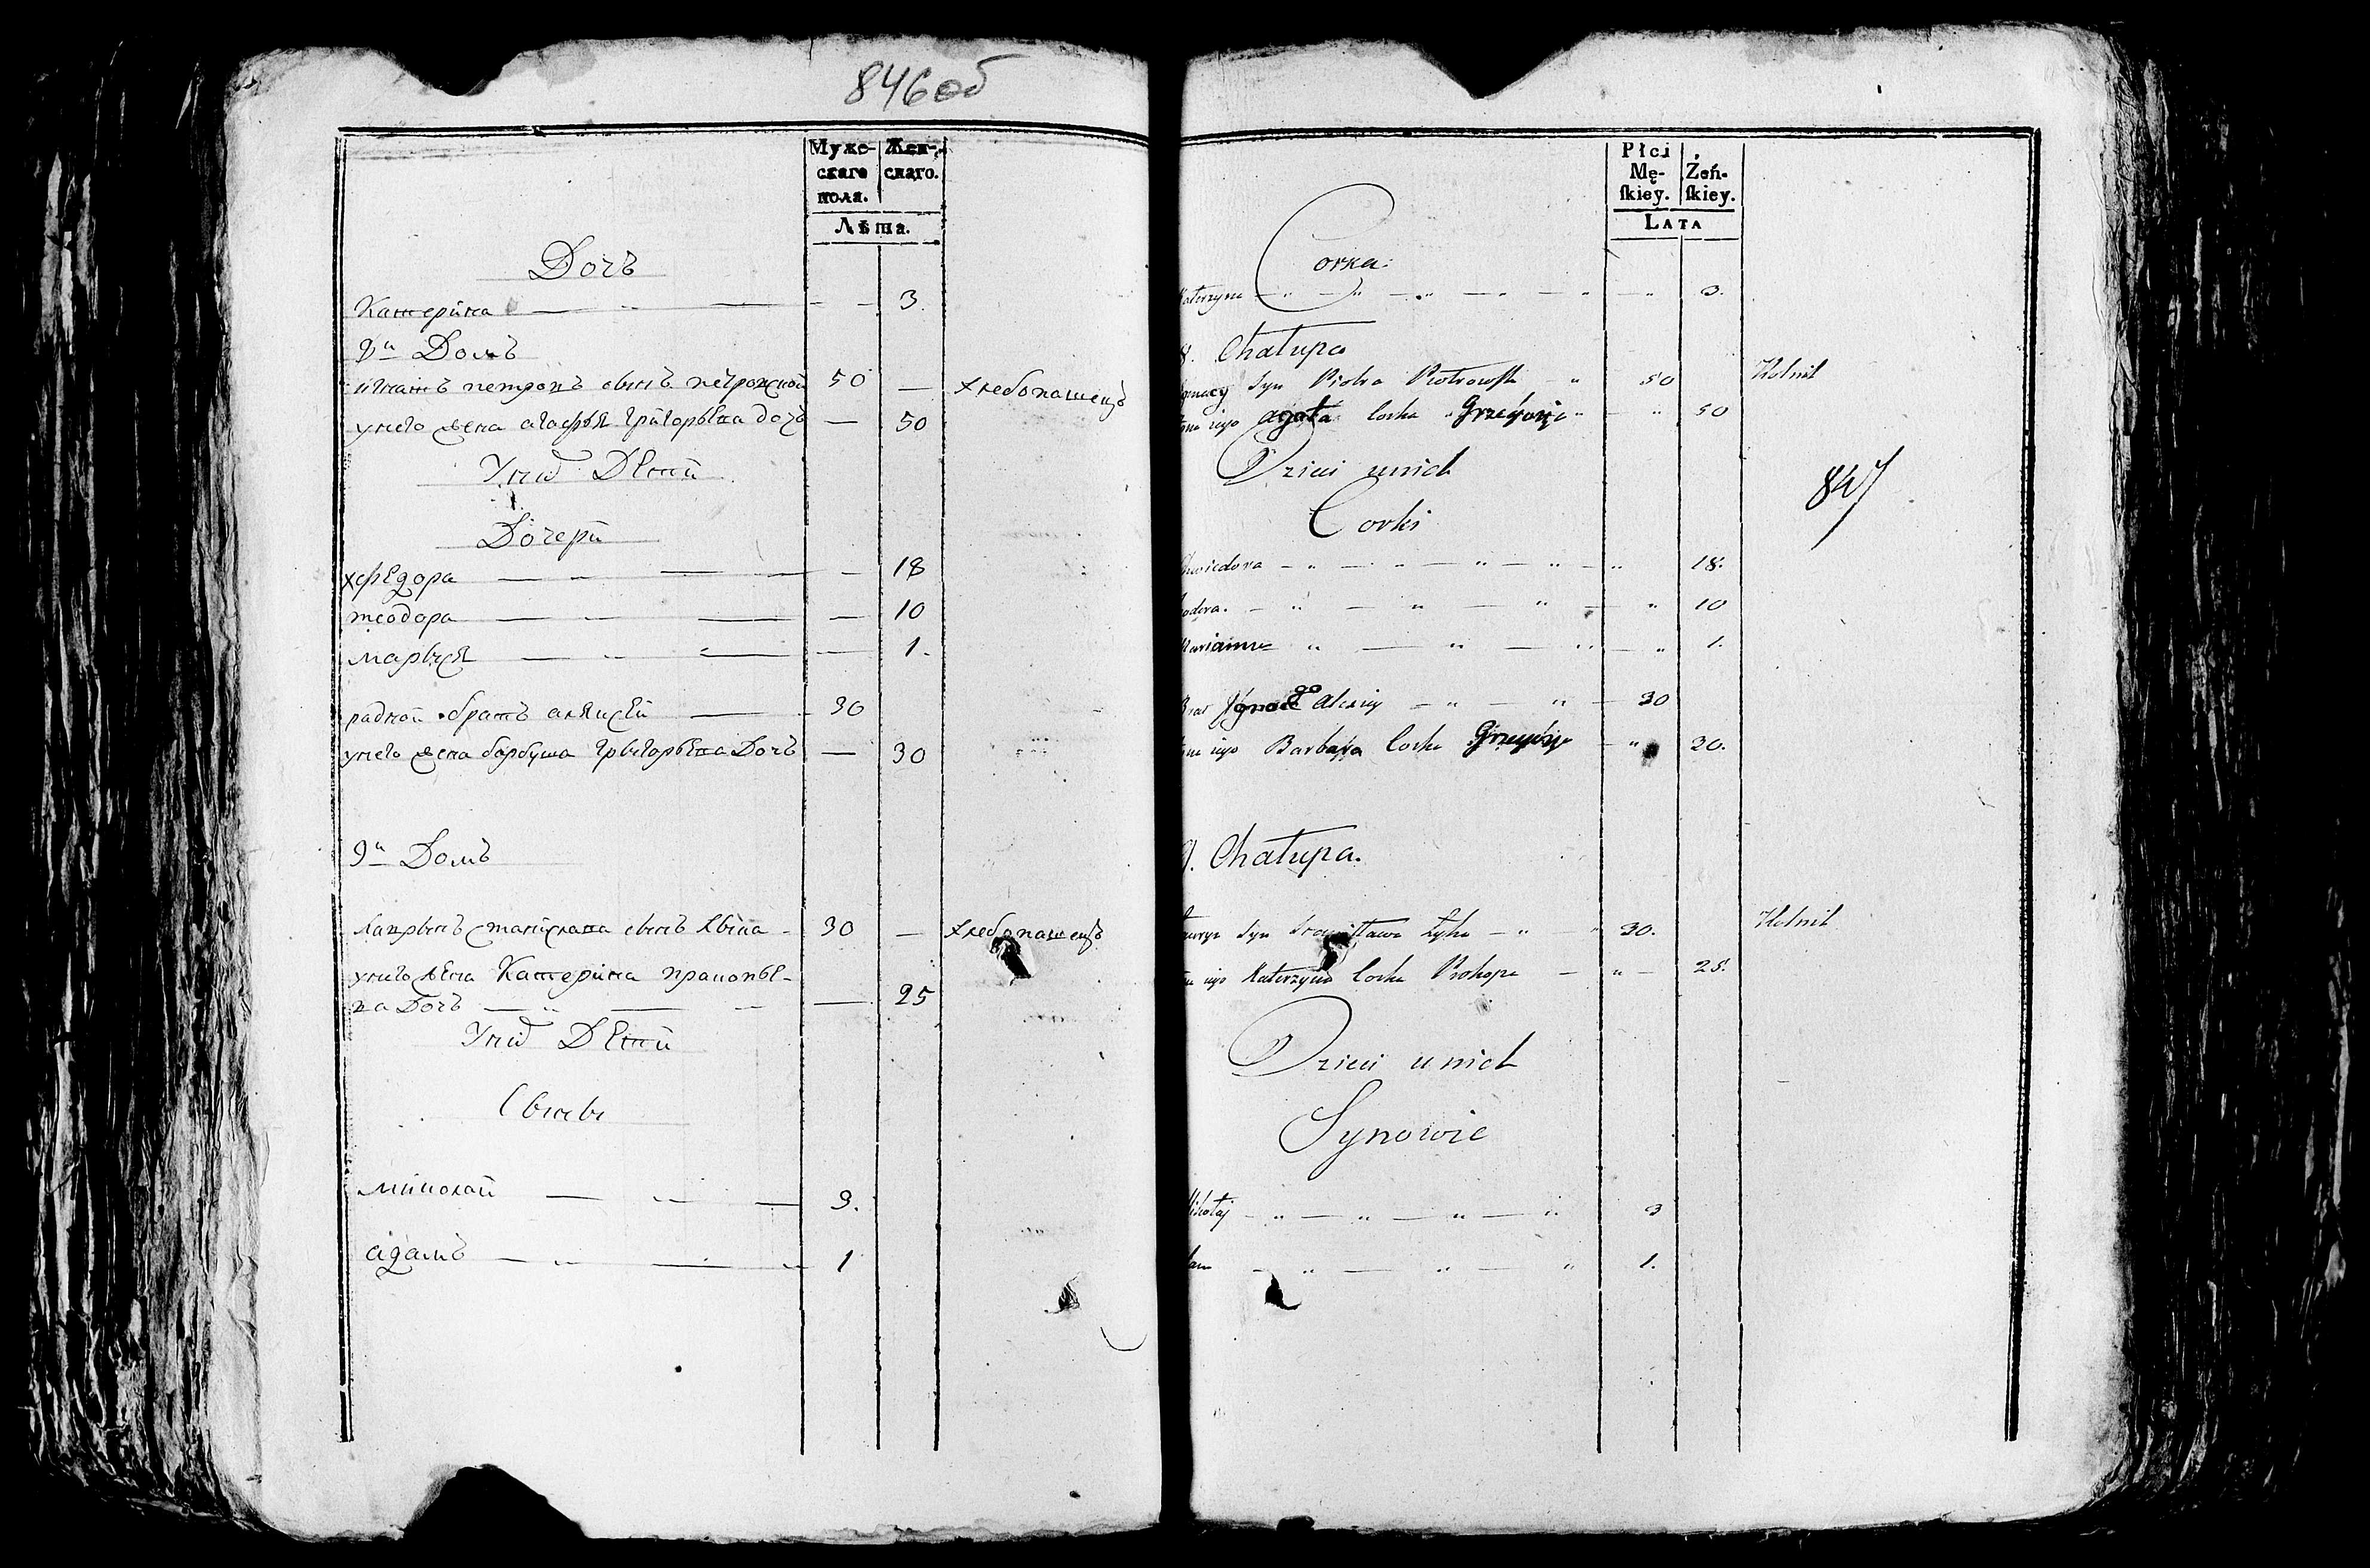 846об
Муже-
скаго
пола.
Жен-
скаго.
Лѣта.
Дочъ
Катерина — 3.
Домъ
петровъ сынъ петровской 50 — хлебопашецъ
унего жена агафья григорьева дочъ — 50
Унихъ Дети
Дочери
хфедора — 18
теодора — 10
марыся — 1.
радной братъ алексей — 30
унего жена барбуша грыгорьева Дочъ — 30
9й Домъ
станислава сынъ 30 — хлебопашецъ
унего жена Катерина пракопье-
ва Дочъ — 25
Унихъ Дети
Сыны
миколай — 3.
адамъ — 1
Płci
Mę-
ſkiey.
Żeń-
ſkiey.
LATA
Corka.
Katerzyna — 3.
8. Chałupa
Ignacy Syn Piotra Piotrowſki 50 Rolnik
żona iego agata Corka Grzegorza 50
Dzieci unich
Corki
Chwiedora — 18.
Teodora. — 10
Marianna — 1.
Brat Ignacego Alexiey — 30
żona iego Barbara Corka Grzegorza 30.
9. Chałupa.
Syn Stanisława 30. Rolnik
żona iego Katerzyna Corka Prokopa — 25.
Dzieci unich
Synowie
Mikołaj — 3
Adam — 1.
847